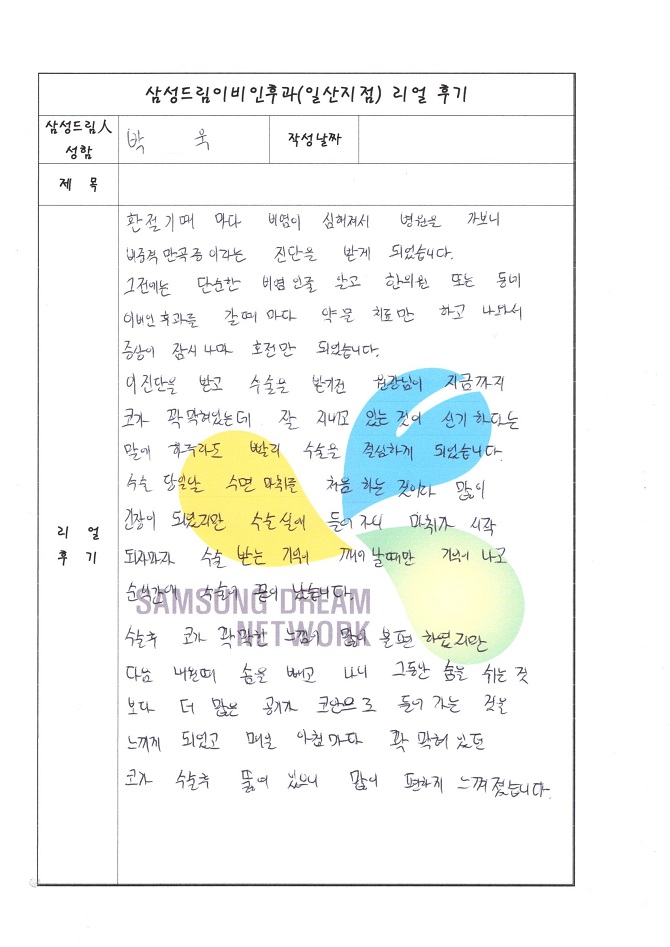 삼성드림이비인후과(일산지점) 리얼 후기
삼성드림人 성함
박 욱
작성날짜
제 목
리 얼 후 기
환절기때 마다 비염이 심해져서 병원을 가보니
비중격만곡증이라는 진단을 받게 되었습니다.
그전에는 단순한 비염인줄 알고 한의원 또는 동네
이비인후과를 갈때마다 약물 치료만 하고 나와서
증상이 잠시나마 호전만 되었습니다.
이진단을 받고 수술을 받기전 원장님이 지금까지
코가 꽉막혀있는데 잘 지내고 있는 것이 신기하다는
말에 하루라도 빨리 수술을 결심하게 되었습니다.
수술 당일날 수면 마취를 처음 하는 것이라 많이
긴장이 되었지만 수술실에 들어가서 마취가 시작
되자마자 수술 받는 기억이 깨어날때만 기억이 나고
순식간에 수술이 끝이 났습니다.
SAMSUNG DREAM
NETWORK
수술후 코가 꽉막힌 느낌이 많이 불편 하였지만
다음 내원때 솜을 빼고 나니 그동안 숨을 쉬는 것
보다 더 많은 공기가 코안으로 들어 가는 것을
느끼게 되었고 매일 아침마다 꽉 막혀 있던
코가 수술후 뚫려 있으니 많이 편하게 느껴졌습니다.